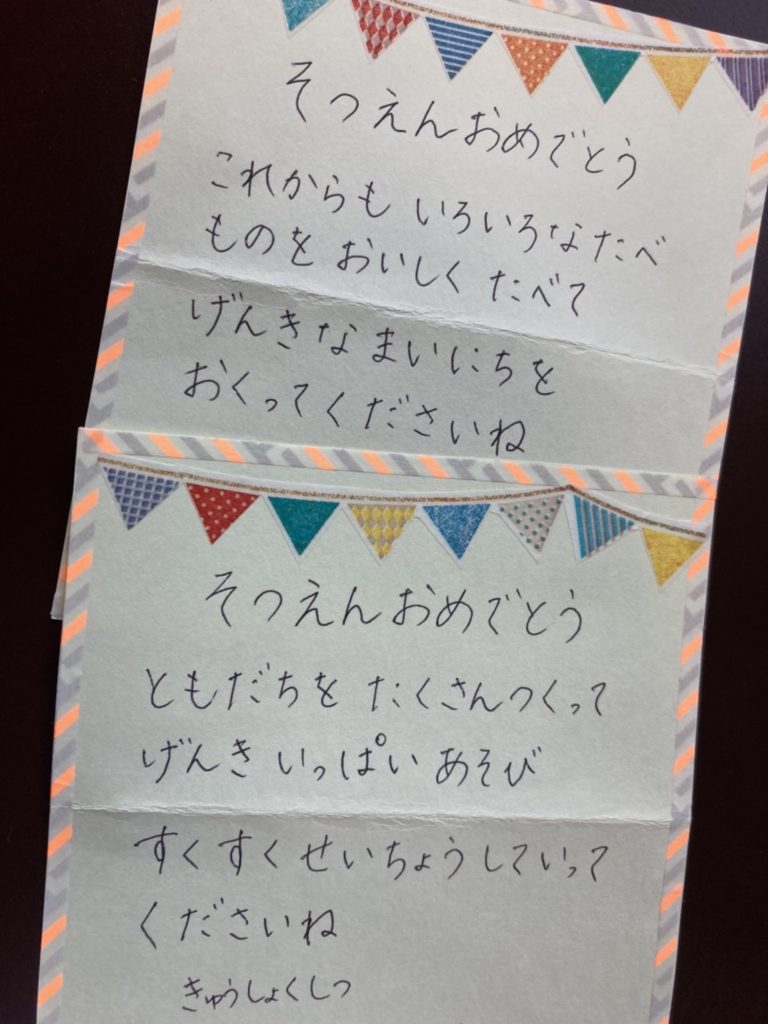 そつえんおめでとう
これからも いろいろなたべ
ものを おいしく たべて
げんきな まいにちを
おくってくださいね
そつえんおめでとう
ともだちを たくさんつくって
げんき いっぱい あそび
すくすく せいちょうしていって
くださいね
きゅうしょくしつ